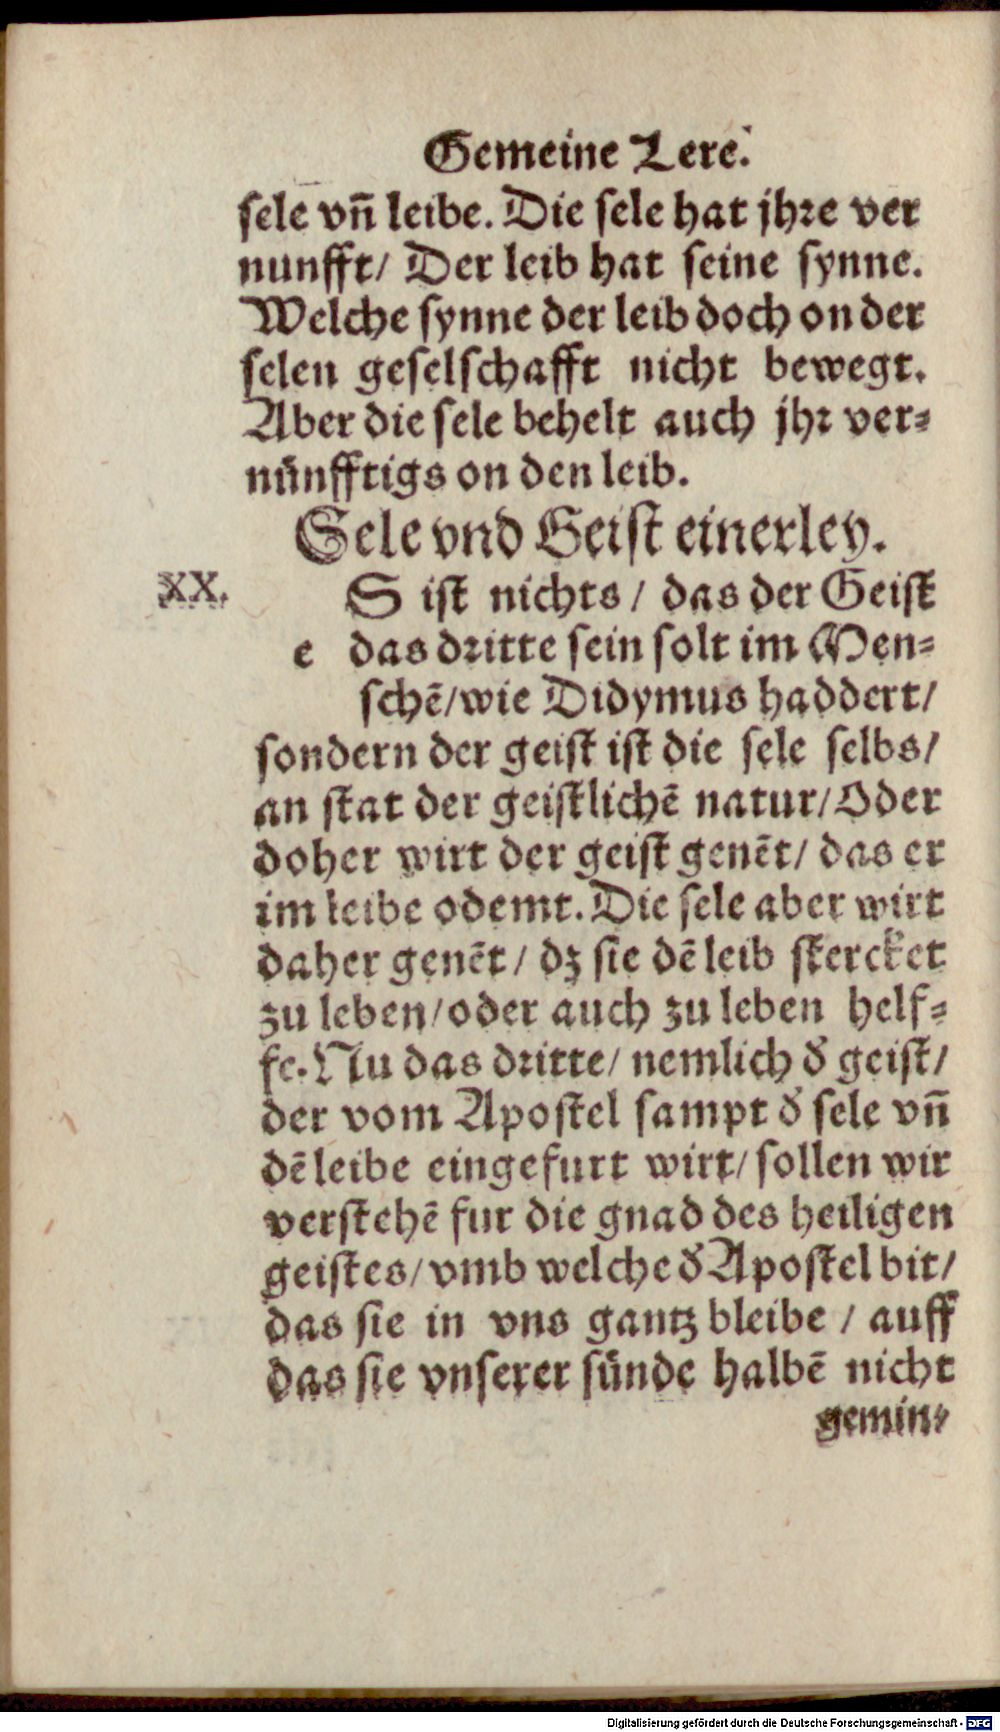 Gemeine Lere.
sele vñ leibe. Die sele hat jhre ver
nunfft/ Der leib hat seine synne.
Welche synne der leib doch on der
selen geselschafft nicht bewegt.
Aber die sele behelt auch jhr ver⸗
nünfftigs on den leib.
Sele vnd Geist einerley.
XX.
S ist nichts / das der Geist
e das dritte sein solt im Men⸗
schẽ/wie Didymus haddert/
sondern der geist ist die sele selbs/
an stat der geistlichẽ natur/Oder
doher wirt der geist genẽt/ das er
im leibe odemt. Die sele aber wirt
daher genẽt / dz sie dẽ leib stercket
zu leben/oder auch zu leben helf⸗
fe. Nu das dritte/ nemlich ð geist/
der vom Apostel sampt ð sele vñ
dẽ leibe eingefurt wirt/ sollen wir
verstehẽ fur die gnad des heiligen
geistes/ vmb welche ð Apostel bit/
das sie in vns gantz bleibe / auff
das sie vnserer sünde halbẽ nicht
gemin⸗
Digitalisierung gefördert durch die Deutsche Forschungsgemeinschaft - DFG